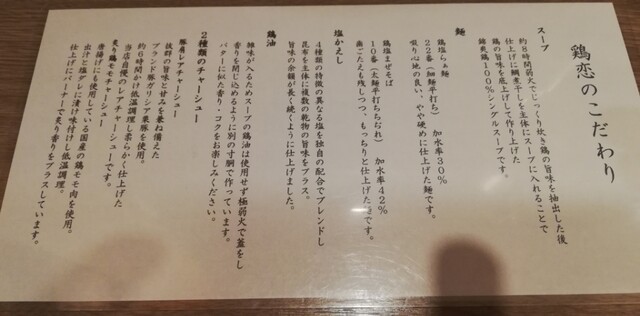 鶏恋のこだわり
スープ
約8時間弱火でじっくり炊き鶏の旨味を抽出した後
仕上げに鯛煮干しを主体にスープに入れることで
鶏の旨味を底上げして作り上げた
錦爽鶏100%シングルスープです。
麺
鶏塩らぁ麺
22番(細麺平打ち) 加水率30%
啜り心地の良い、やや硬めに仕上げた麺です。
鶏塩まぜそば
10番(太麺平打ちちぢれ) 加水率42%
歯ごたえも残しつつ、もっちりと仕上げた
塩かえし
4種類の特徴の異なる塩を独自の配合でブレンドし
昆布を主体に複数の乾物の旨味をプラス。
旨味の余韻が長く続くように仕上げました。
鶏油
雑味が入るためスープの鶏油は使用せず極弱火で蓋をし
香りを閉じ込めるように別の寸胴で作っています。
バターに似た香り・コクをお楽しみください。
2種類のチャーシュー
豚肩レアチャーシュー
抜群の旨味と甘みを兼ね備えた
ブランド豚ガリシア栗豚を使用。
約6時間かけ低温調理し柔らかく仕上げた
当店自慢のレアチャーシューです。
炙り鶏モモチャーシュー
唐揚げにも使用している国産の鶏モモ肉を使用。
出汁と塩ダレに漬け味付けし低温調理。
仕上げにバーナーで炙り香りをプラスしています。